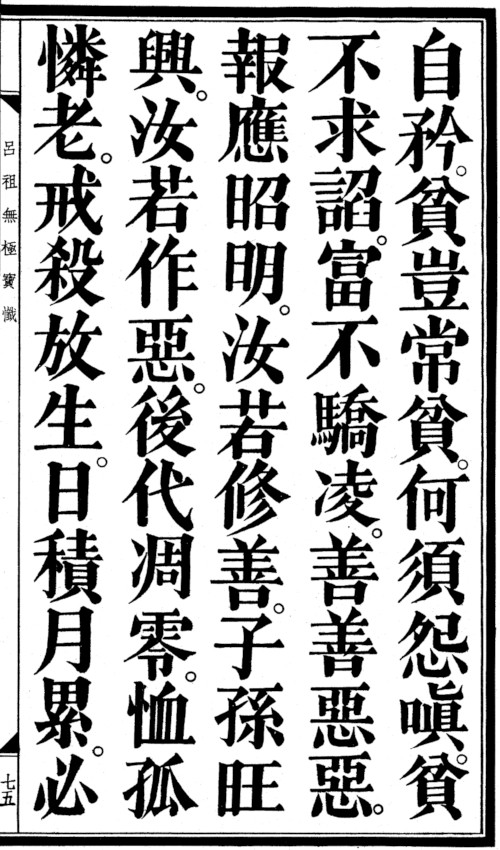 自矜。貧豈常貧。何須怨嗔。貧
不求謟。富不驕凌。善善惡惡。
報應昭明。汝若修善。子孫旺
興。汝若作惡。後代凋零。恤孤
憐老。戒殺放生。日積月累。必
呂祖無極寶懺
七五